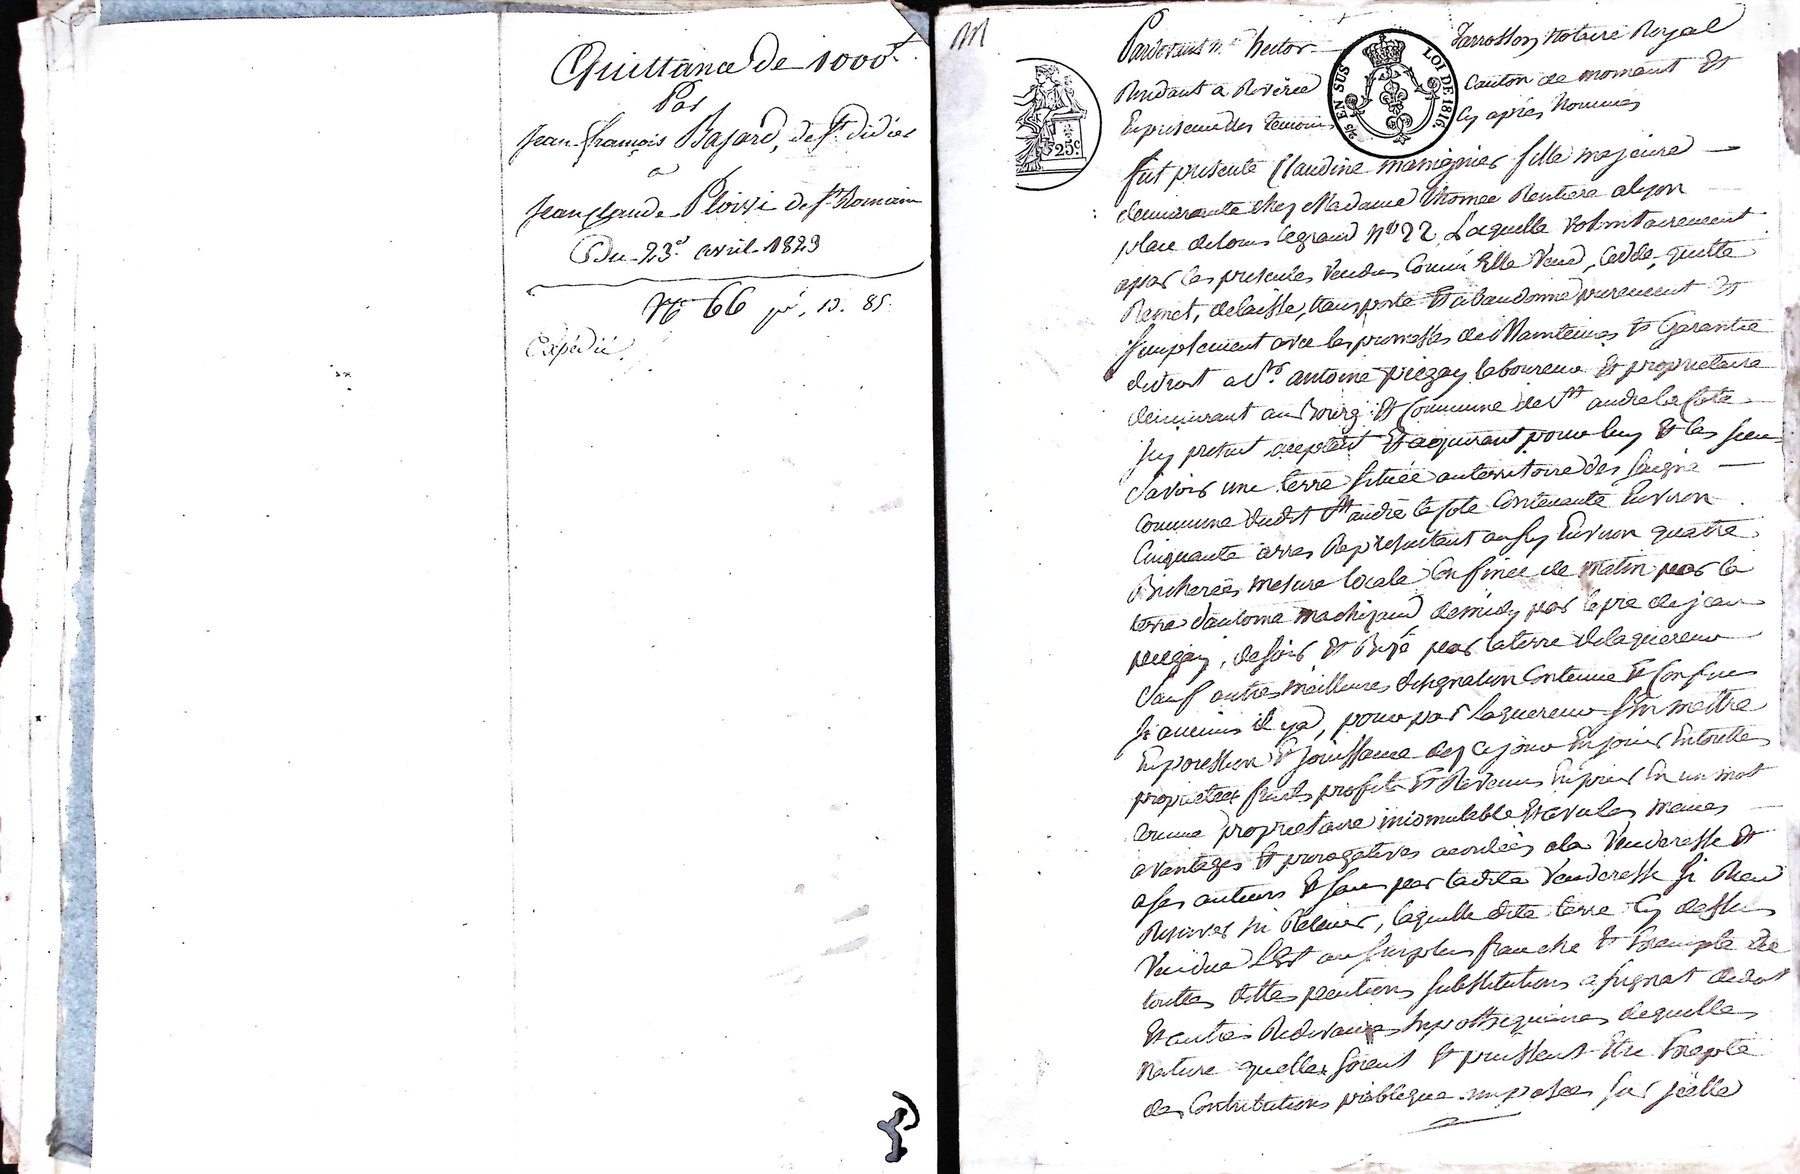 Quittance de 1000f.
Par
Jean françois Bajard, de St didier
a
Jean Claude Ploivi de St Romain
Du 23. avril 1823
No 66 13. 85.
Expédié.
M
Pardevant Me hector Jarrosson Notaire Royal
Residant a Riverie Canton de mornant Et
En presence des temoins Cy après Nommés
EN SUS
LOI DE 1816
25c
fut presente Claudine manignier fille majeure
demeurante chez Madame thomee Rentiere a lyon
place de Louis Legrand No 22, Laquelle volontairement
a par les presentes Vendu Comme Elle Vend, Cedde, quitte
Remet, delaisse, transporte Et abandonne purement Et
simplement avec les promesses de Maintenir Et Garantir
de droit a Sr. antoine piegay laboureur Et proprietaire
demeurant au Bourg Et Commune de St andre la Cote
Icy present acceptant Et acquerant pour luy Et les siens
Savoir une terre située au territoire des Saigne
Commune dudit St andré la Cote Contenante Environ
Cinquante arres Representant aussy Environ quatre
Bicherées mesure locale Confinée de matin par la
terre d'antoine de midy par le pre de jean
piegay, de soir Et Bize par la terre de laquereur
Sauf autres meilleures designation Contenue Et Confins
si aucuns il y a, pour par laquereur s'en mettre
En possession Et jouissance des ce jour En jouir En toutte
proprieté fruits profits Et Revenus En jouir En un mot
comme proprietaire incomutable Et avec les memes
avantages Et prerogatives acordées a la Venderesse Et
a ses auteurs Et sans par ladite Venderesse si Rien
Reserver ni Retenir, laquelle dite terre Cy dessus
Vendue Est au surplus franche Et Exempte de
touttes dettes pentions substitutions a fugnat de dot
Et autres Redevances hypothequaires de quelle
nature quelles soient Et puissent Etre Excepté
des Contributions publique imposées sur icelle